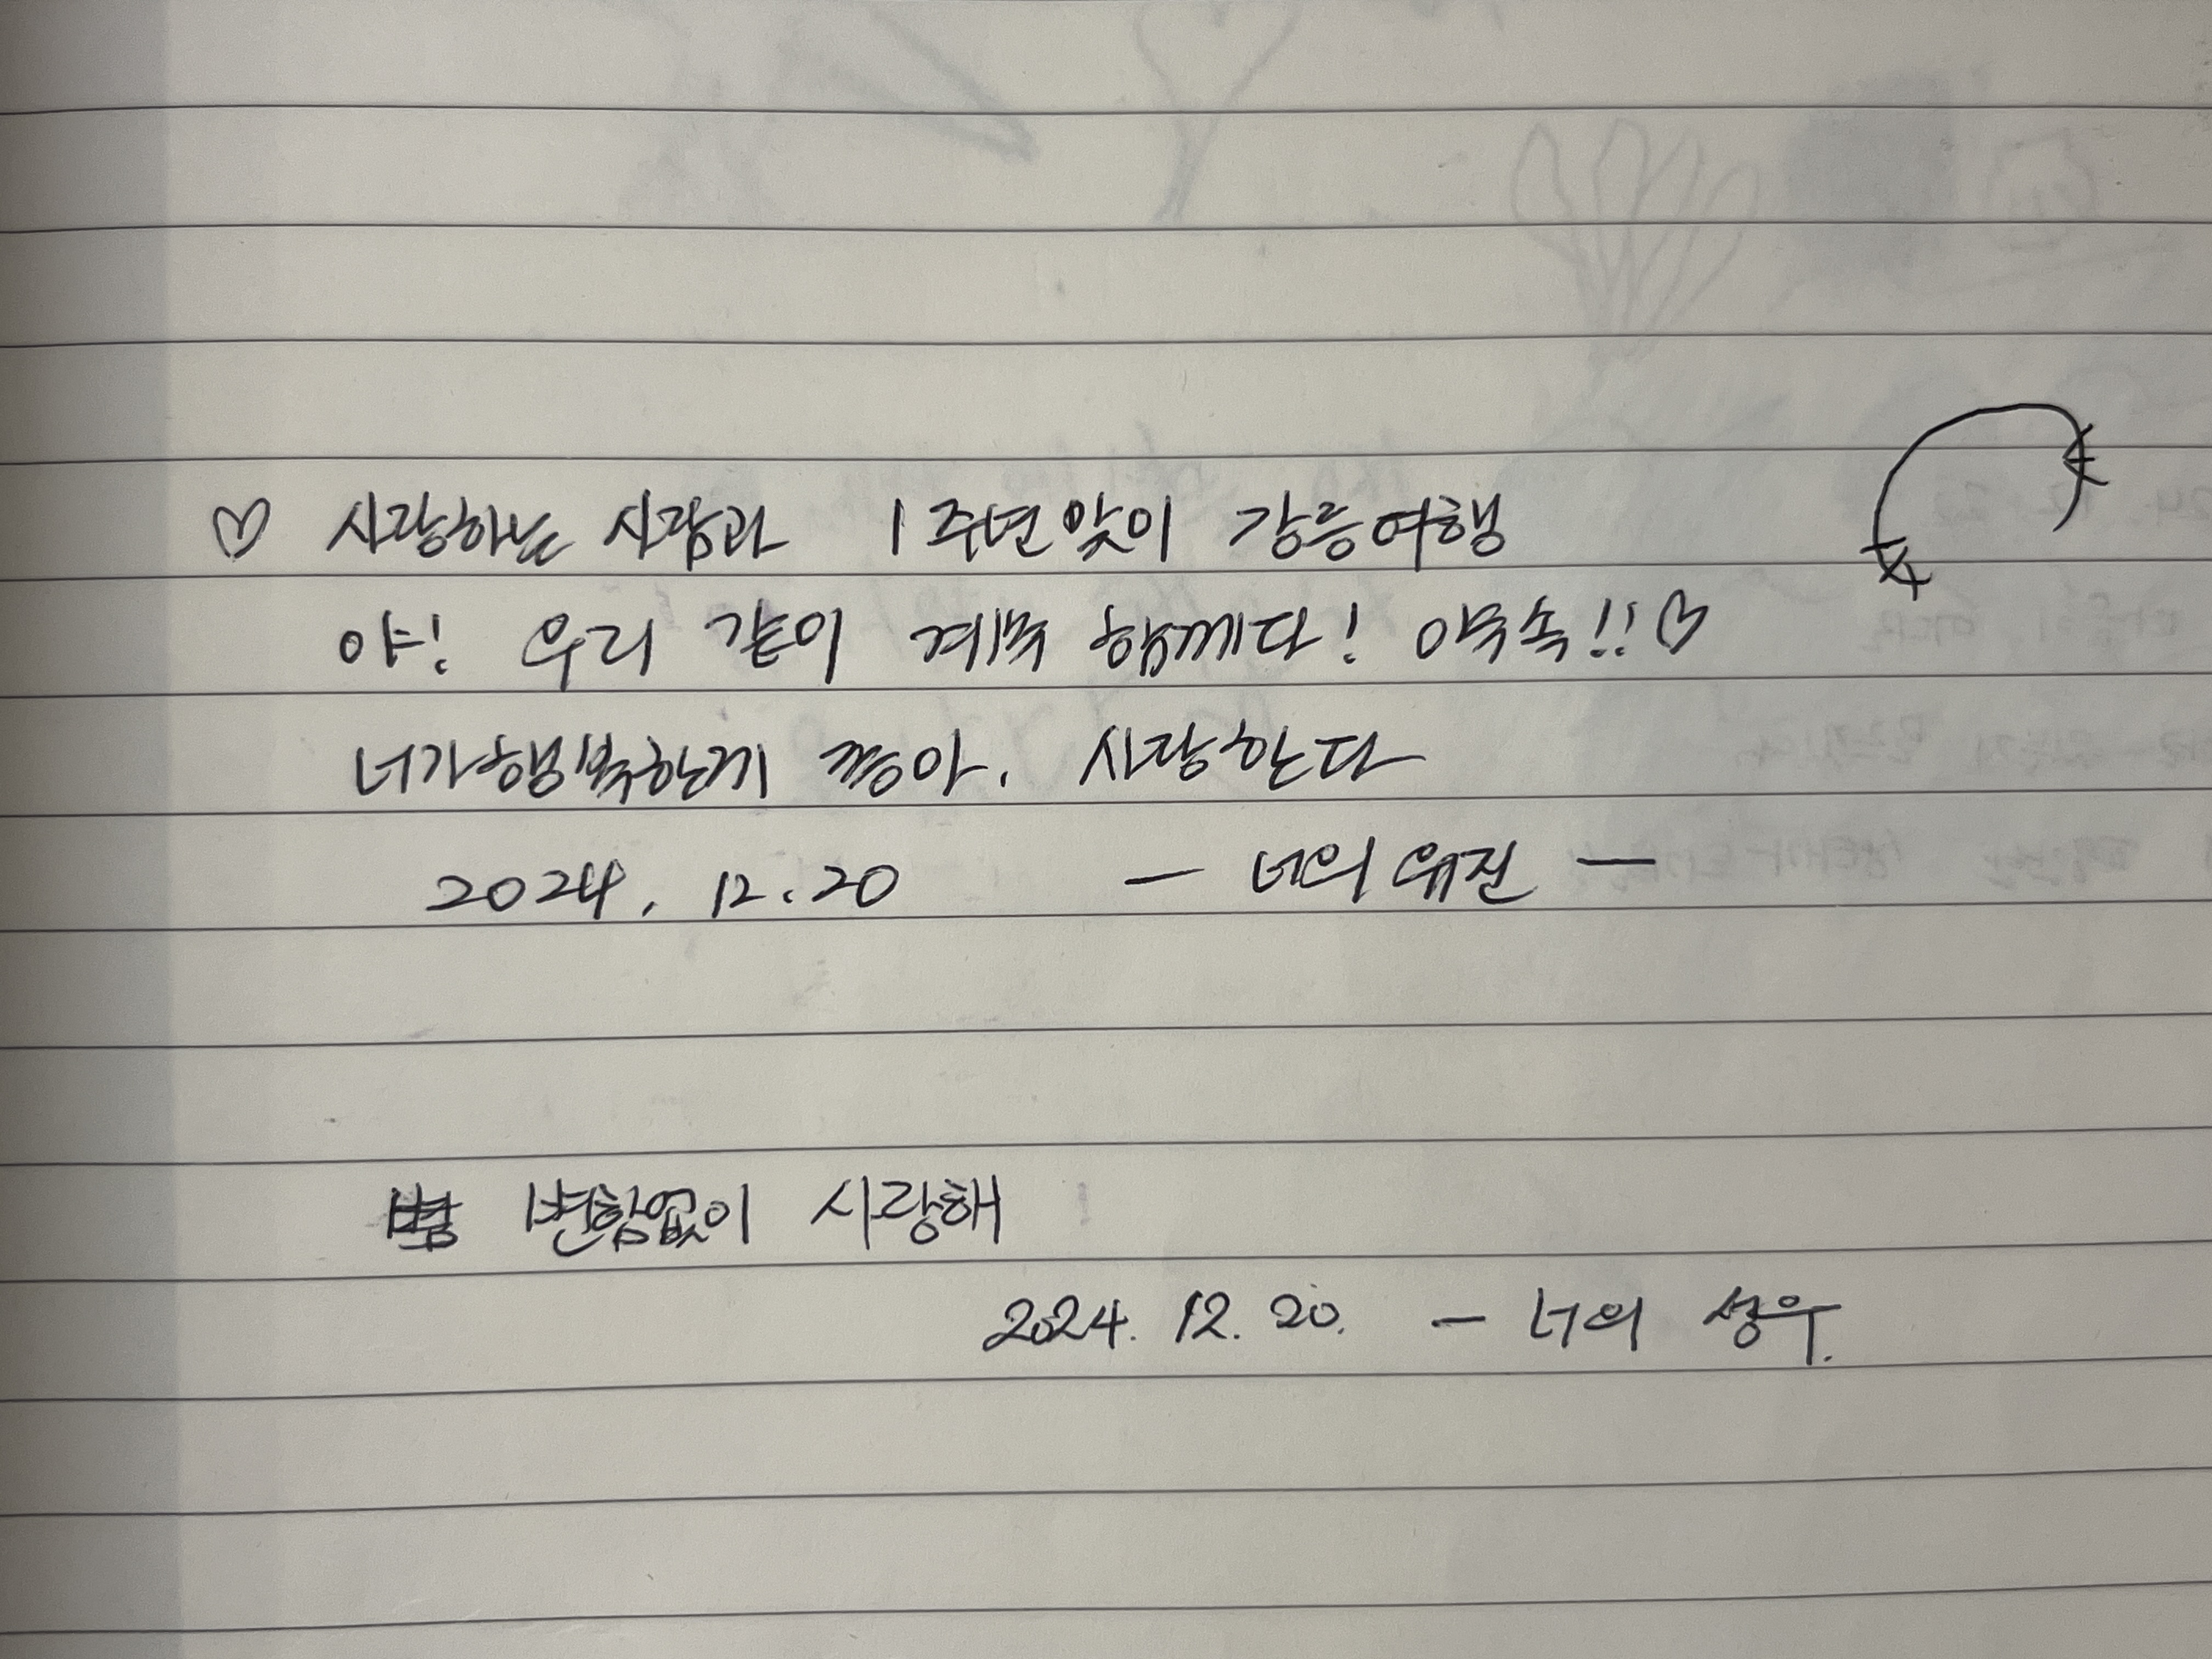 ♡ 사랑하는 사람과 1주년맞이 강릉여행
야! 우리 같이 계속 함께다! 약속!!♡
너가행복한게 좋아. 사랑한다
2024. 12. 20 — 너의 유진 —
변함없이 사랑해
2024. 12. 20. — 너의 성우.